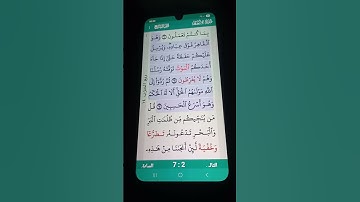 بِمَا كُنتُمْ تَعْمَلُونَ وَهُوَ
ٱلْقَاهِرُ فَوْقَ عِبَادِهِۦ وَيُرْسِلُ
عَلَيْكُمْ حَفَظَةً حَتَّىٰٓ إِذَا جَآءَ
أَحَدَكُمُ ٱلْمَوْتُ تَوَفَّتْهُ رُسُلُنَا
وَهُمْ لَا يُفَرِّطُونَ ثُمَّ رُدُّوٓا۟ إِلَى
ٱللَّهِ مَوْلَىٰهُمُ ٱلْحَقِّ أَلَا لَهُ ٱلْحُكْمُ
وَهُوَ أَسْرَعُ ٱلْحَٰسِبِينَ قُلْ
مَن يُنَجِّيكُم مِّن ظُلُمَٰتِ ٱلْبَرِّ
وَٱلْبَحْرِ تَدْعُونَهُۥ تَضَرُّعًا
وَخُفْيَةً لَّئِنْ أَنجَىٰنَا مِنْ هَٰذِهِۦ
7:2